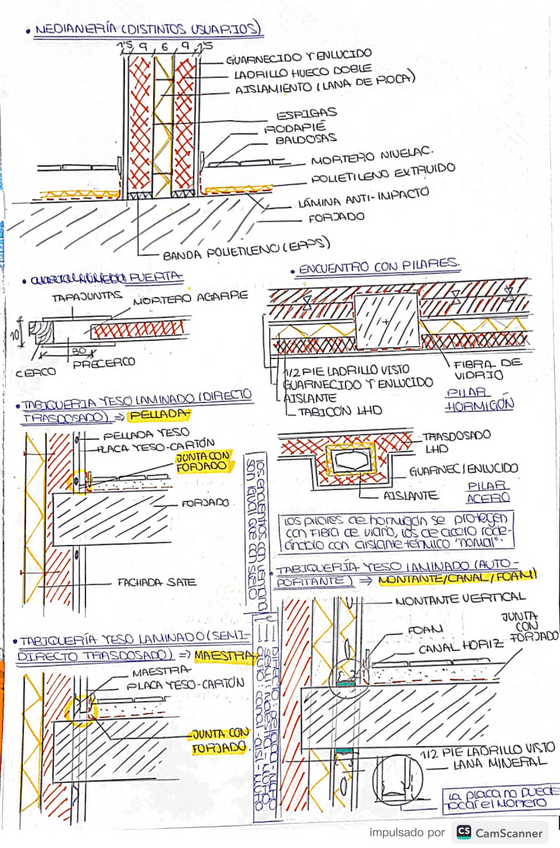 • MEDIANERÍA (DISTINTOS USUARIOS)
1'5 9 6 9 1'5
GUARNECIDO Y ENLUCIDO
LADRILLO HUECO DOBLE
AISLAMIENTO (LANA DE ROCA)
ESPIGAS
RODAPIÉ
BALDOSAS
MORTERO NIVELAC.
POLIETILENO EXTRUIDO
LÁMINA ANTI-IMPACTO
FORJADO
BANDA POLIETILENO (EPPS)
PUERTA
TAPAJUNTAS
MORTERO AGARRE
10
30
CERCO
PRECERCO
• ENCUENTRO CON PILARES.
1/2 PIE LADRILLO VISTO
GUARNECIDO Y ENLUCIDO
AISLANTE
TABICÓN LHD
FIBRA DE
VIDRIO
PILAR
HORMIGÓN
TRASDOSADO
LHD
GUARNEC/ENLUCIDO
AISLANTE
PILAR
ACERO
LOS PILARES DE HORMIGÓN SE PROTEGEN
CON FIBRA DE VIDRIO, LOS DE ACERO RODE-
ÁNDOLO CON AISLANTE TÉRMICO "NORMAL".
• TABIQUERÍA YESO LAMINADO (DIRECTO
TRASDOSADO) ⇒ PELLADA
PELLADA YESO
PLACA YESO-CARTÓN
JUNTA CON
FORJADO
FORJADO
FACHADA SATE
• TABIQUERÍA YESO LAMINADO (SEMI-
DIRECTO TRASDOSADO) ⇒ MAESTRA
MAESTRA
PLACA YESO-CARTÓN
JUNTA CON
FORJADO.
• TABIQUERÍA YESO LAMINADO (AUTO-
PORTANTE) ⇒ MONTANTE/CANAL/FOAM
MONTANTE VERTICAL
FOAM
CANAL HORIZ
JUNTA
CON
FORJADO
1/2 PIE LADRILLO VISTO
LANA MINERAL
LA PLACA NO PUEDE
TOCAR EL MORTERO
impulsado por CS CamScanner